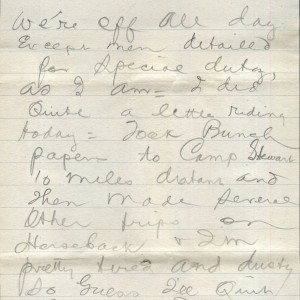 We're off all day
Except men detailed
for special duty,
as I am = I did
Quite a little riding
today = Took Bunch
papers to Camp Stewart
10 miles distant and
then made several
Other trips on
Horseback & I'm
pretty tired and dusty
So Guess I'll Quit